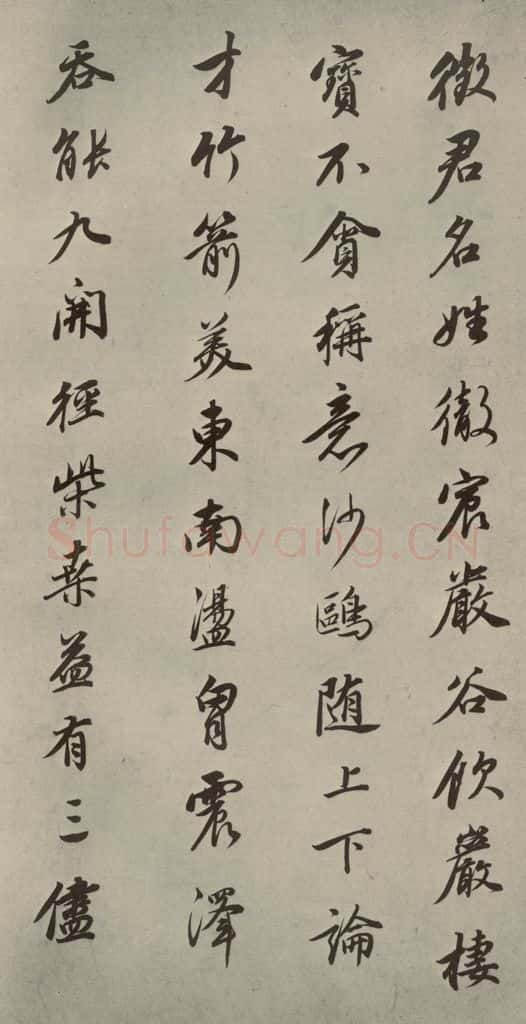 徵君名姓徹宸嚴谷飲巖棲
寶不貪稱意沙鷗随上下論
才竹箭美東南盪胷震澤
吞能九開徑柴桑益有三儘
Shufawang.CN